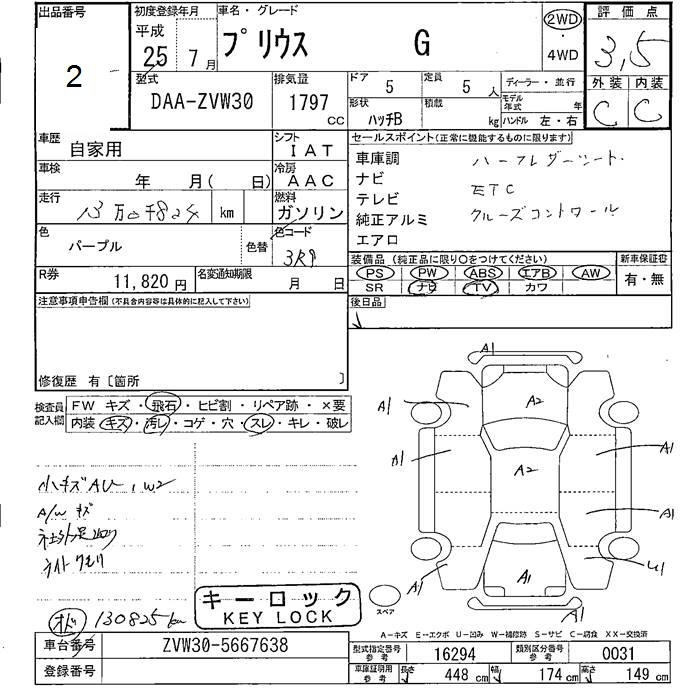 出品番号
2
初度登録年月
平成
25年 7月
車名・グレード
プリウス G
2WD
・
4WD
評価点
3,5
外装 内装
C C
型式
DAA-ZVW30
排気量
1797
CC
ドア
5
定員
5
人
形状
ハッチB
積載
kg
ディーラー・並行
モデル年式
年
ハンドル 左・右
車歴
自家用
シフト
IAT
車検
年 月( 日)
冷房
AAC
走行
km
燃料
ガソリン
色
パープル
色替
色コード
3R9
R券
11,820 円
名変通知期限
月 日
セールスポイント(正常に機能するものに限ります)
車庫調
ナビ
テレビ
純正アルミ
エアロ
ハーフレザーシート.
ETC
クルーズコントロール
装備品 (純正品に限り〇をつけてください)
PS PW ABS エアB AW
SR ナビ TV カワ
新車保証書
有・無
後日品
注意事項申告欄(不具合内容等は具体的に記入して下さい)
修復歴 有〔箇所 〕
検査員記入欄
FW キズ・飛石・ヒビ割・リペア跡・×要
内装 キズ・汚レ・コゲ・穴・スレ・キレ・破レ
小キズAU,W2
A/W キズ
ライトクモリ
130825km
キーロック
KEY LOCK
A1
A2
A1
A1
A1
A2
A1
A1
A1
U1
A1
スペア
A1
A-キズ E-エクボ U-凹み W-補修跡 S-サビ C-腐食 XX-交換済
車台番号
ZVW30-5667638
登録番号
型式指定番号
参考
16294
類別区分番号
参考
0031
車庫証明用
参考
長さ
448 cm
幅
174 cm
高さ
149 cm